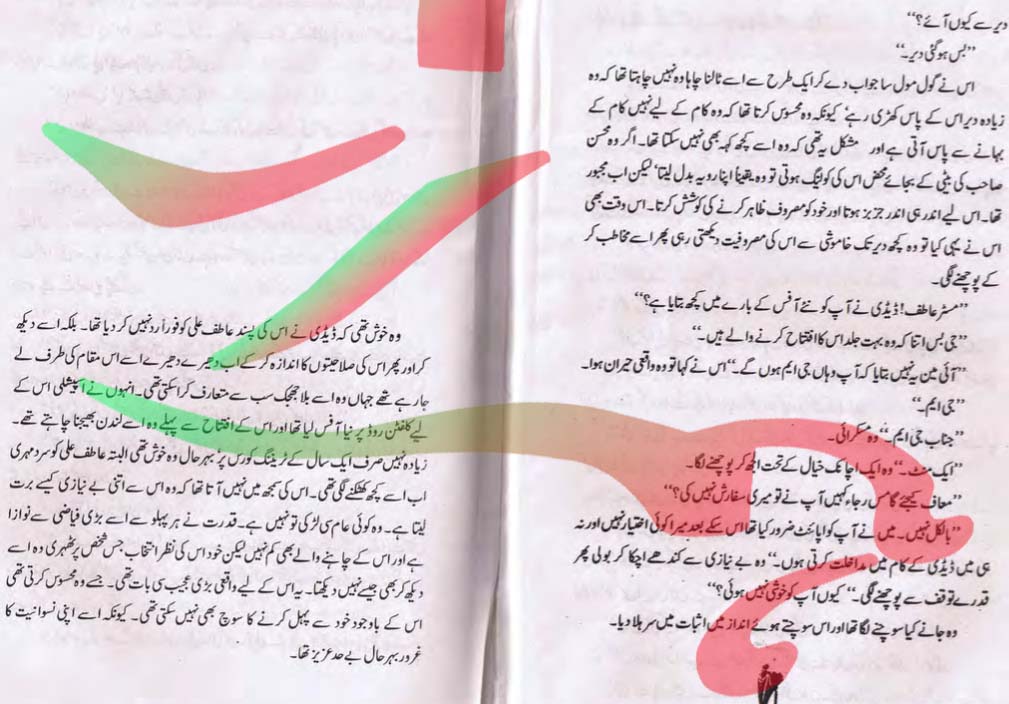 دیر سے کیوں آئے؟‘‘
’’بس ہو گئی دیر۔‘‘
اس نے گول مول سا جواب دے کر ایک طرح سے اسے ٹالنا چاہا وہ نہیں چاہتا تھا کہ وہ
زیادہ دیر اس کے پاس کھڑی رہے‘ کیونکہ وہ محسوس کرتا تھا کہ وہ کام کے لیے نہیں کام کے
بہانے سے پاس آتی ہے اور مشکل یہ تھی کہ وہ اسے کچھ کہہ بھی نہیں سکتا تھا۔ اگر وہ محسن
صاحب کی بیٹی کے بجائے محض اس کی کولیگ ہوتی تو وہ یقیناً اپنا رویہ بدل لیتا‘ لیکن اب مجبور
تھا۔ اس لیے اندر ہی اندر جز بز ہوتا اور خود کو مصروف ظاہر کرنے کی کوشش کرتا۔ اس وقت بھی
اس نے یہی کیا تو وہ کچھ دیر تک خاموشی سے اس کی مصروفیت دیکھتی رہی پھر اسے مخاطب کر
کے پوچھنے لگی۔
’’مسٹر عاطف! ڈیڈی نے آپ کو نئے آفس کے بارے میں کچھ بتایا ہے؟‘‘
’’جی بس اتنا کہ وہ بہت جلد اس کا افتتاح کرنے والے ہیں۔‘‘
’’آئی مین یہ نہیں بتایا کہ آپ وہاں جی ایم ہوں گے۔‘‘ اس نے کہا تو وہ واقعی حیران ہوا۔
’’جی ایم۔‘‘
’’جناب جی ایم۔‘‘ وہ مسکرائی۔
’’ایک منٹ۔‘‘ وہ ایک اچانک خیال کے تحت الجھ کر پوچھنے لگا۔
’’معاف کیجئے گا مس رجاء! کہیں آپ نے تو میری سفارش نہیں کی؟‘‘
’’بالکل نہیں۔ میں نے آپ کو اپائنٹ ضرور کیا تھا اس کے بعد میرا کوئی اختیار نہیں اور نہ
ہی میں ڈیڈی کے کام میں مداخلت کرتی ہوں۔‘‘ وہ بے نیازی سے کندھے اچکا کر بولی پھر
قدرے توقف سے پوچھنے لگی۔ ’’کیوں آپ کو خوشی نہیں ہوئی؟‘‘
وہ جانے کیا سوچنے لگا تھا اور اس سوچتے ہوئے انداز میں اثبات میں سر ہلا دیا۔
وہ خوش تھی کہ ڈیڈی نے اس کی پسند عاطف علی کو فوراً رد نہیں کر دیا تھا۔ بلکہ اسے دیکھ
کر اور پھر اس کی صلاحیتوں کا اندازہ کر کے اب دھیرے دھیرے اسے اس مقام کی طرف لے
جا رہے تھے جہاں وہ اسے بلا جھجک سب سے متعارف کرا سکتی تھی۔ انہوں نے اسپیشلی اس کے
لیے کلفٹن روڈ پر نیا آفس لیا تھا اور اس کے افتتاح سے پہلے وہ اسے لندن بھیجنا چاہتے تھے۔
زیادہ نہیں صرف ایک سال کے ٹریننگ کورس پر‘ بہر حال وہ خوش تھی البتہ عاطف علی کو سرد مہری
اب اسے کچھ کھٹکنے لگی تھی۔ اس کی سمجھ میں نہیں آتا تھا کہ وہ اس سے اتنی بے نیازی کیسے برت
لیتا ہے۔ وہ کوئی عام سی لڑکی تو نہیں ہے۔ قدرت نے ہر پہلو سے اسے بڑی فیاضی سے نوازا
ہے اور اس کے چاہنے والے بھی کم نہیں لیکن خود اس کی نظر انتخاب جس شخص پر ٹھہری وہ اسے
دیکھ کر بھی جیسے نہیں دیکھتا۔ یہ اس کے لیے واقعی بڑی عجیب سی بات تھی۔ جسے وہ محسوس کرتی تھی
اس کے باوجود خود سے پہل کرنے کا سوچ بھی نہیں سکتی تھی۔ کیونکہ اسے اپنی نسوانیت کا
غرور بہر حال بے حد عزیز تھا۔